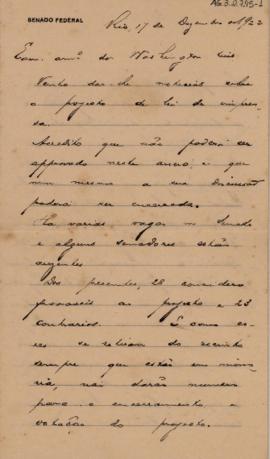 AG.3.2.795-1
SENADO FEDERAL
Rio, 17 de Dezembro de 1922
Exmo. amº. dr. Washington Luis
Venho dar-lhe noticias sobre
o projecto de lei de impren-
sa.
Acredito que não poderá ser
approvado neste anno, e que
nem mesmo a sua discussão
poderá ser encerrada.
Ha varias vagas no Senado
e alguns senadores estão
ausentes
Dos presentes, 28 considero
favoraveis ao projecto e 23
contrarios. E como es-
es se retiram do recinto
sempre que estão em mino-
ria, não darão numero
para o encerramento e
votação do projecto.